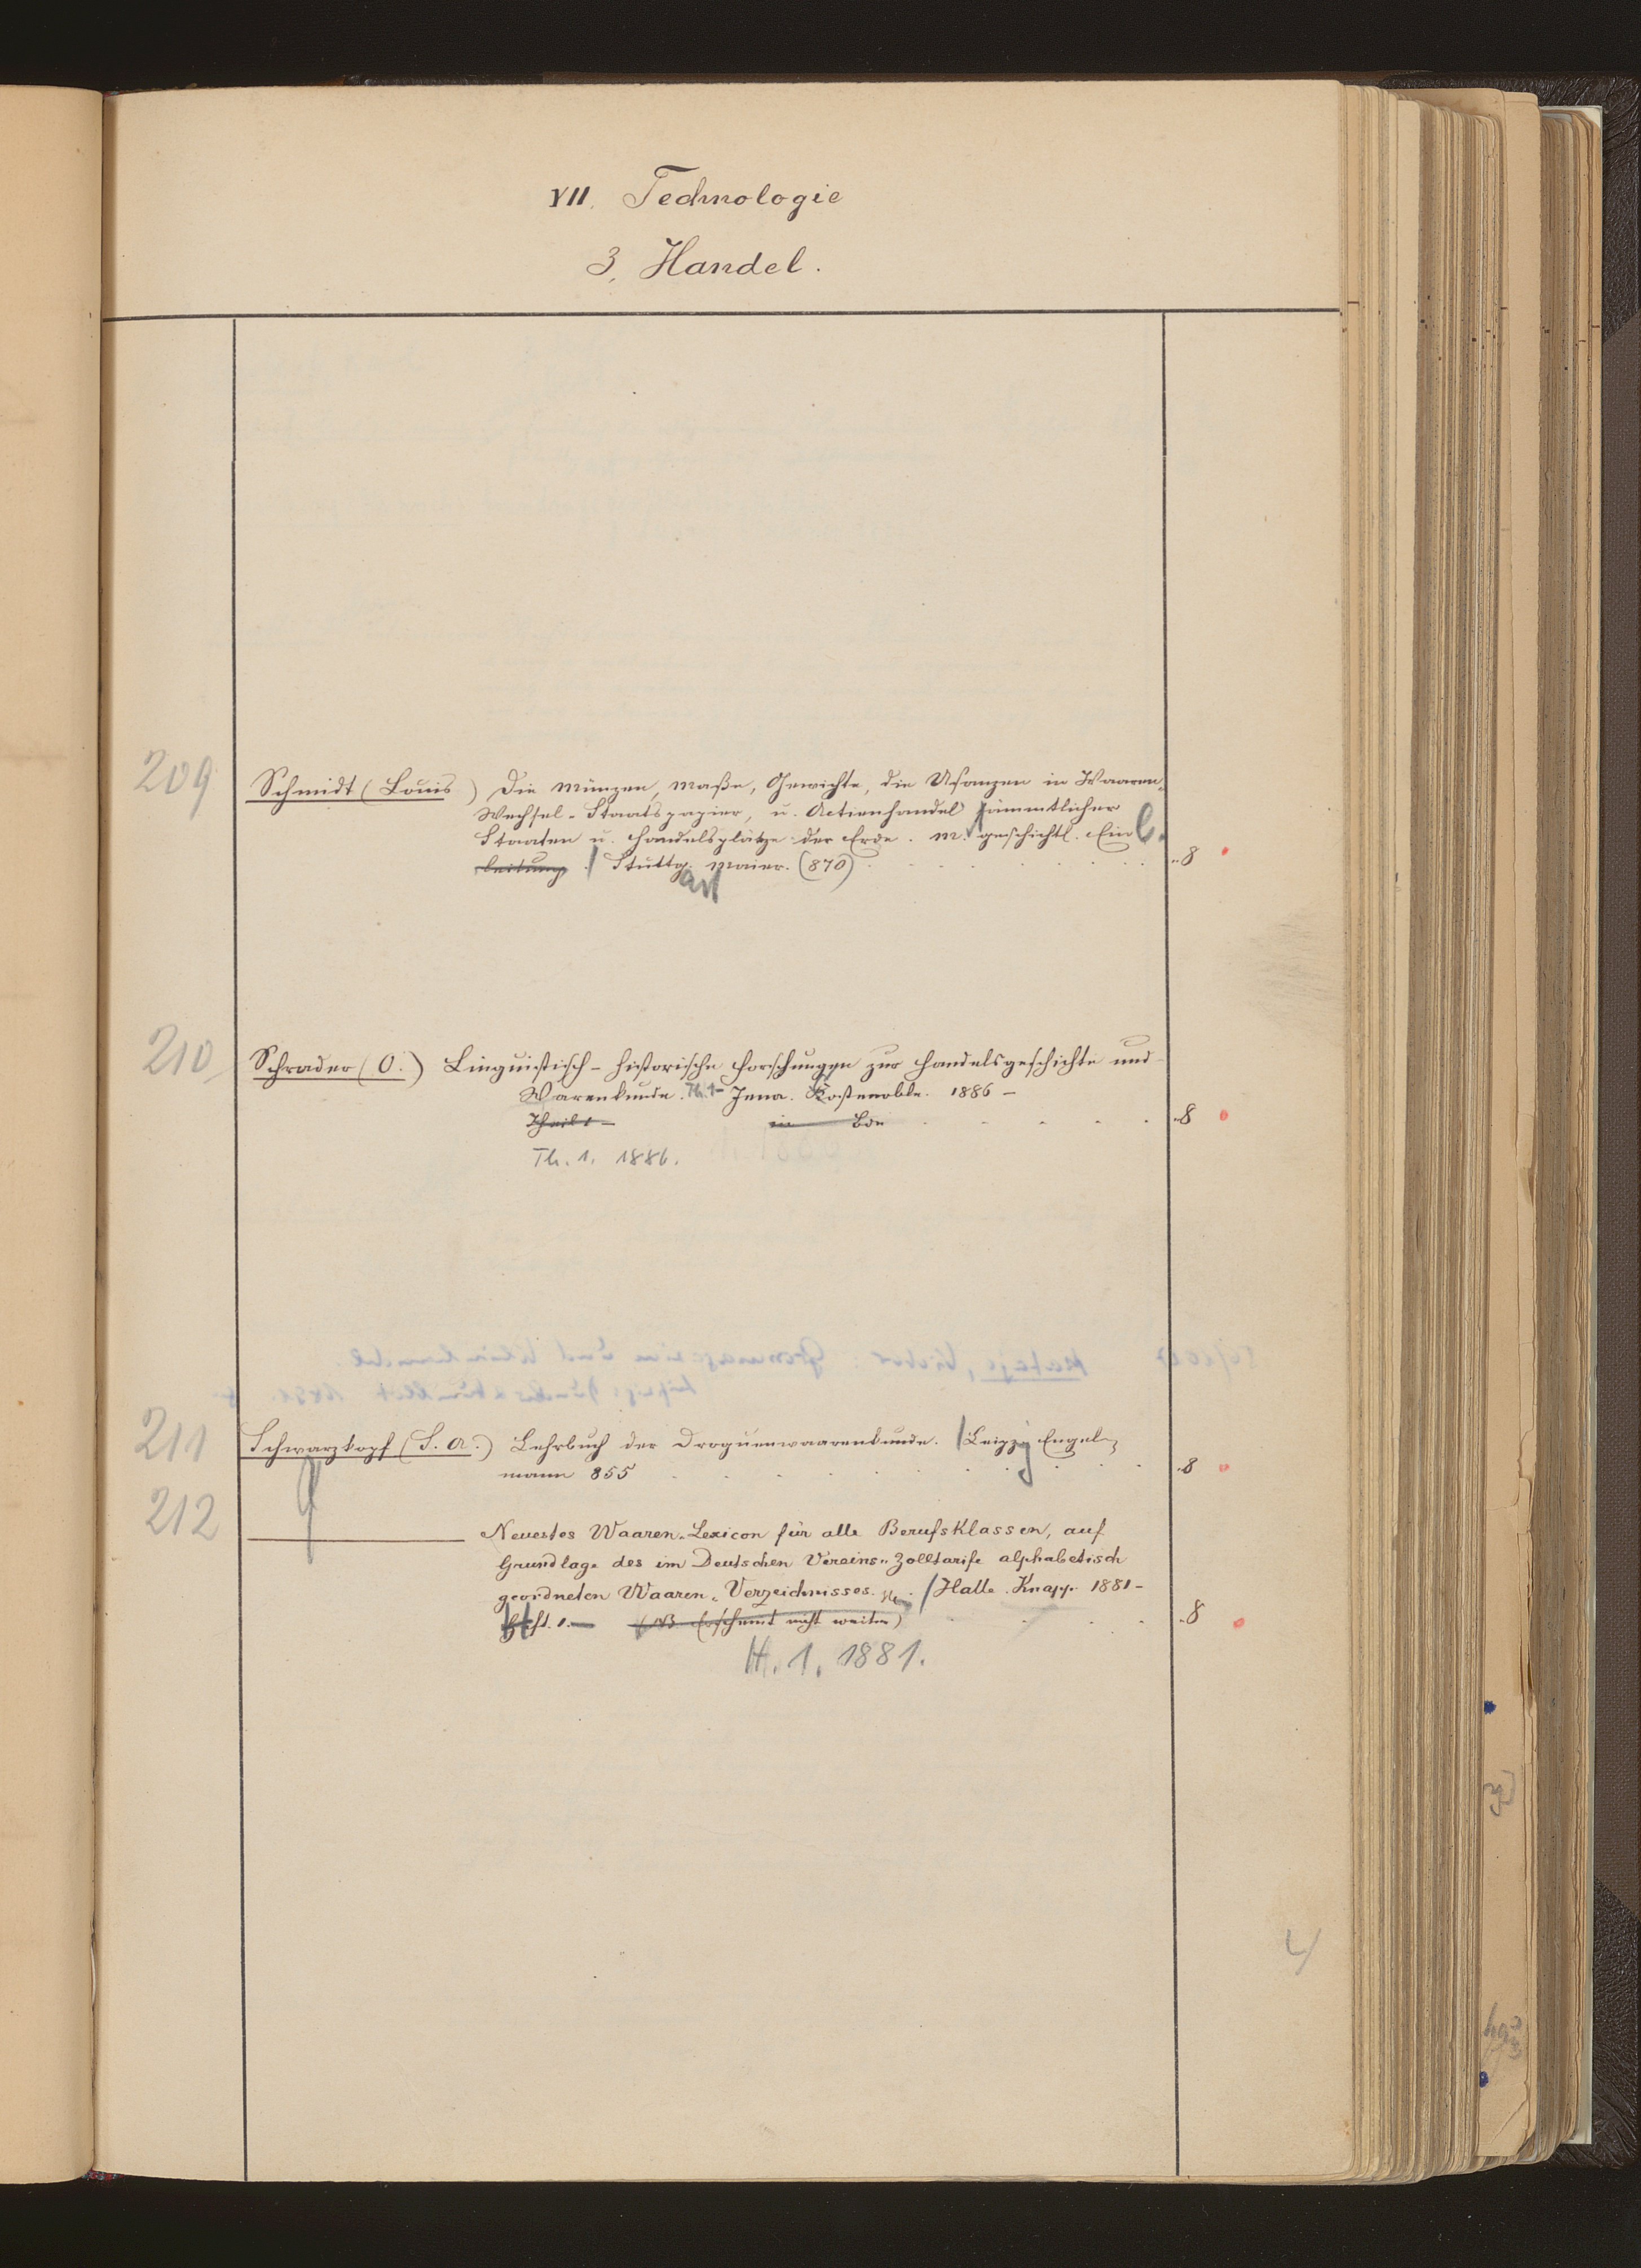 VII. Technologie
3. Handel.
209
Schmidt (Louis) Die Münzen, Maße, Gewichte, die Usanzen in Waaren-
Wechsel-Staatspapier, u. Actienhandel sämmtlicher
Staaten u. Handelsplätze der Erde. M. geschichtl. Einl.
leitung / Stuttg. art Maier. (870) 8
210
Schrader (O.) Linguistisch-historische Forschungen zur Handelsgeschichte und
Warenkunde. Th. 1- Jena. Kostenoble. 1886 -
Theil 1 - in Bde 8
Th. 1. 1886.
211
Schwarzkopf (S. A.) Lehrbuch der Droguenwaarenkunde. / Leipzig Engel-
mann 855 8
212
Neuestes Waaren-Lexicon für alle Berufsklassen, auf
Grundlage des im Deutschen Vereins-Zolltarife alphabetisch
geordneten Waaren-Verzeichnisses. / Halle. Knapp. 1881 -
Heft. 1. - (NB. Erscheint nicht weiter) 8
H. 1. 1881.
4